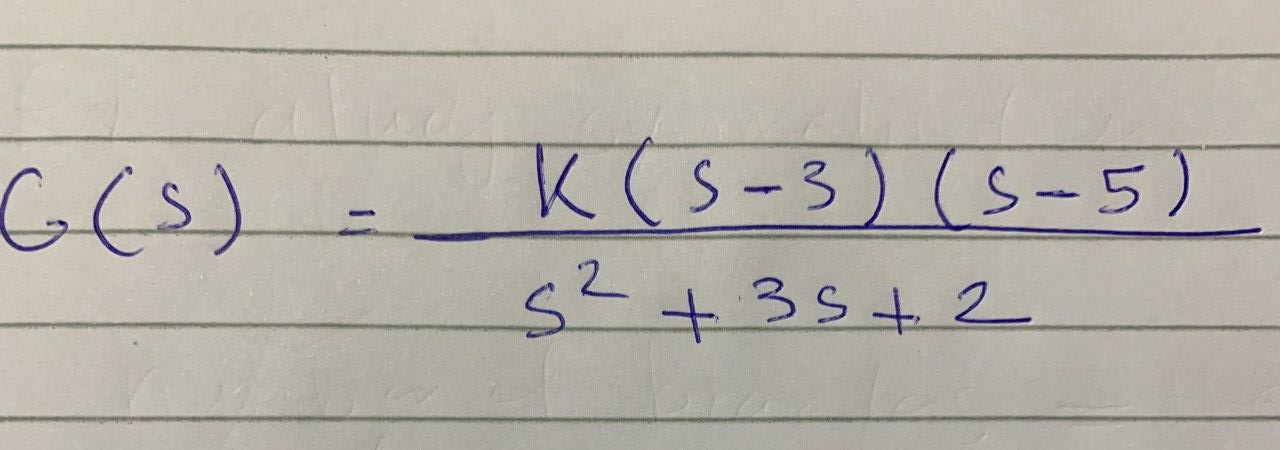 G(s) = K(s-3)(s-5) / s² + 3s + 2